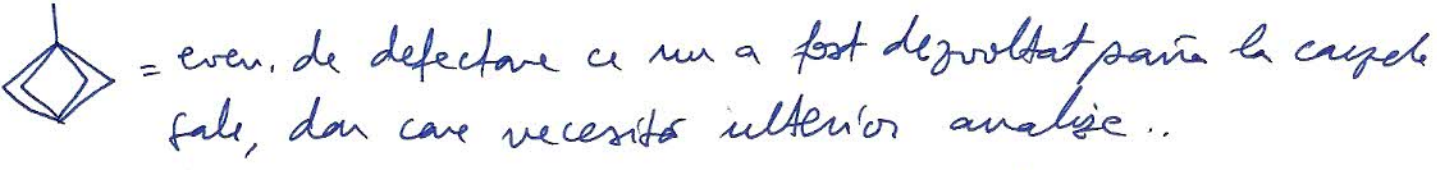 = even. de defectare ce nu a fost dezvoltat până la cauzele
sale, dar care necesită ulterior analize..